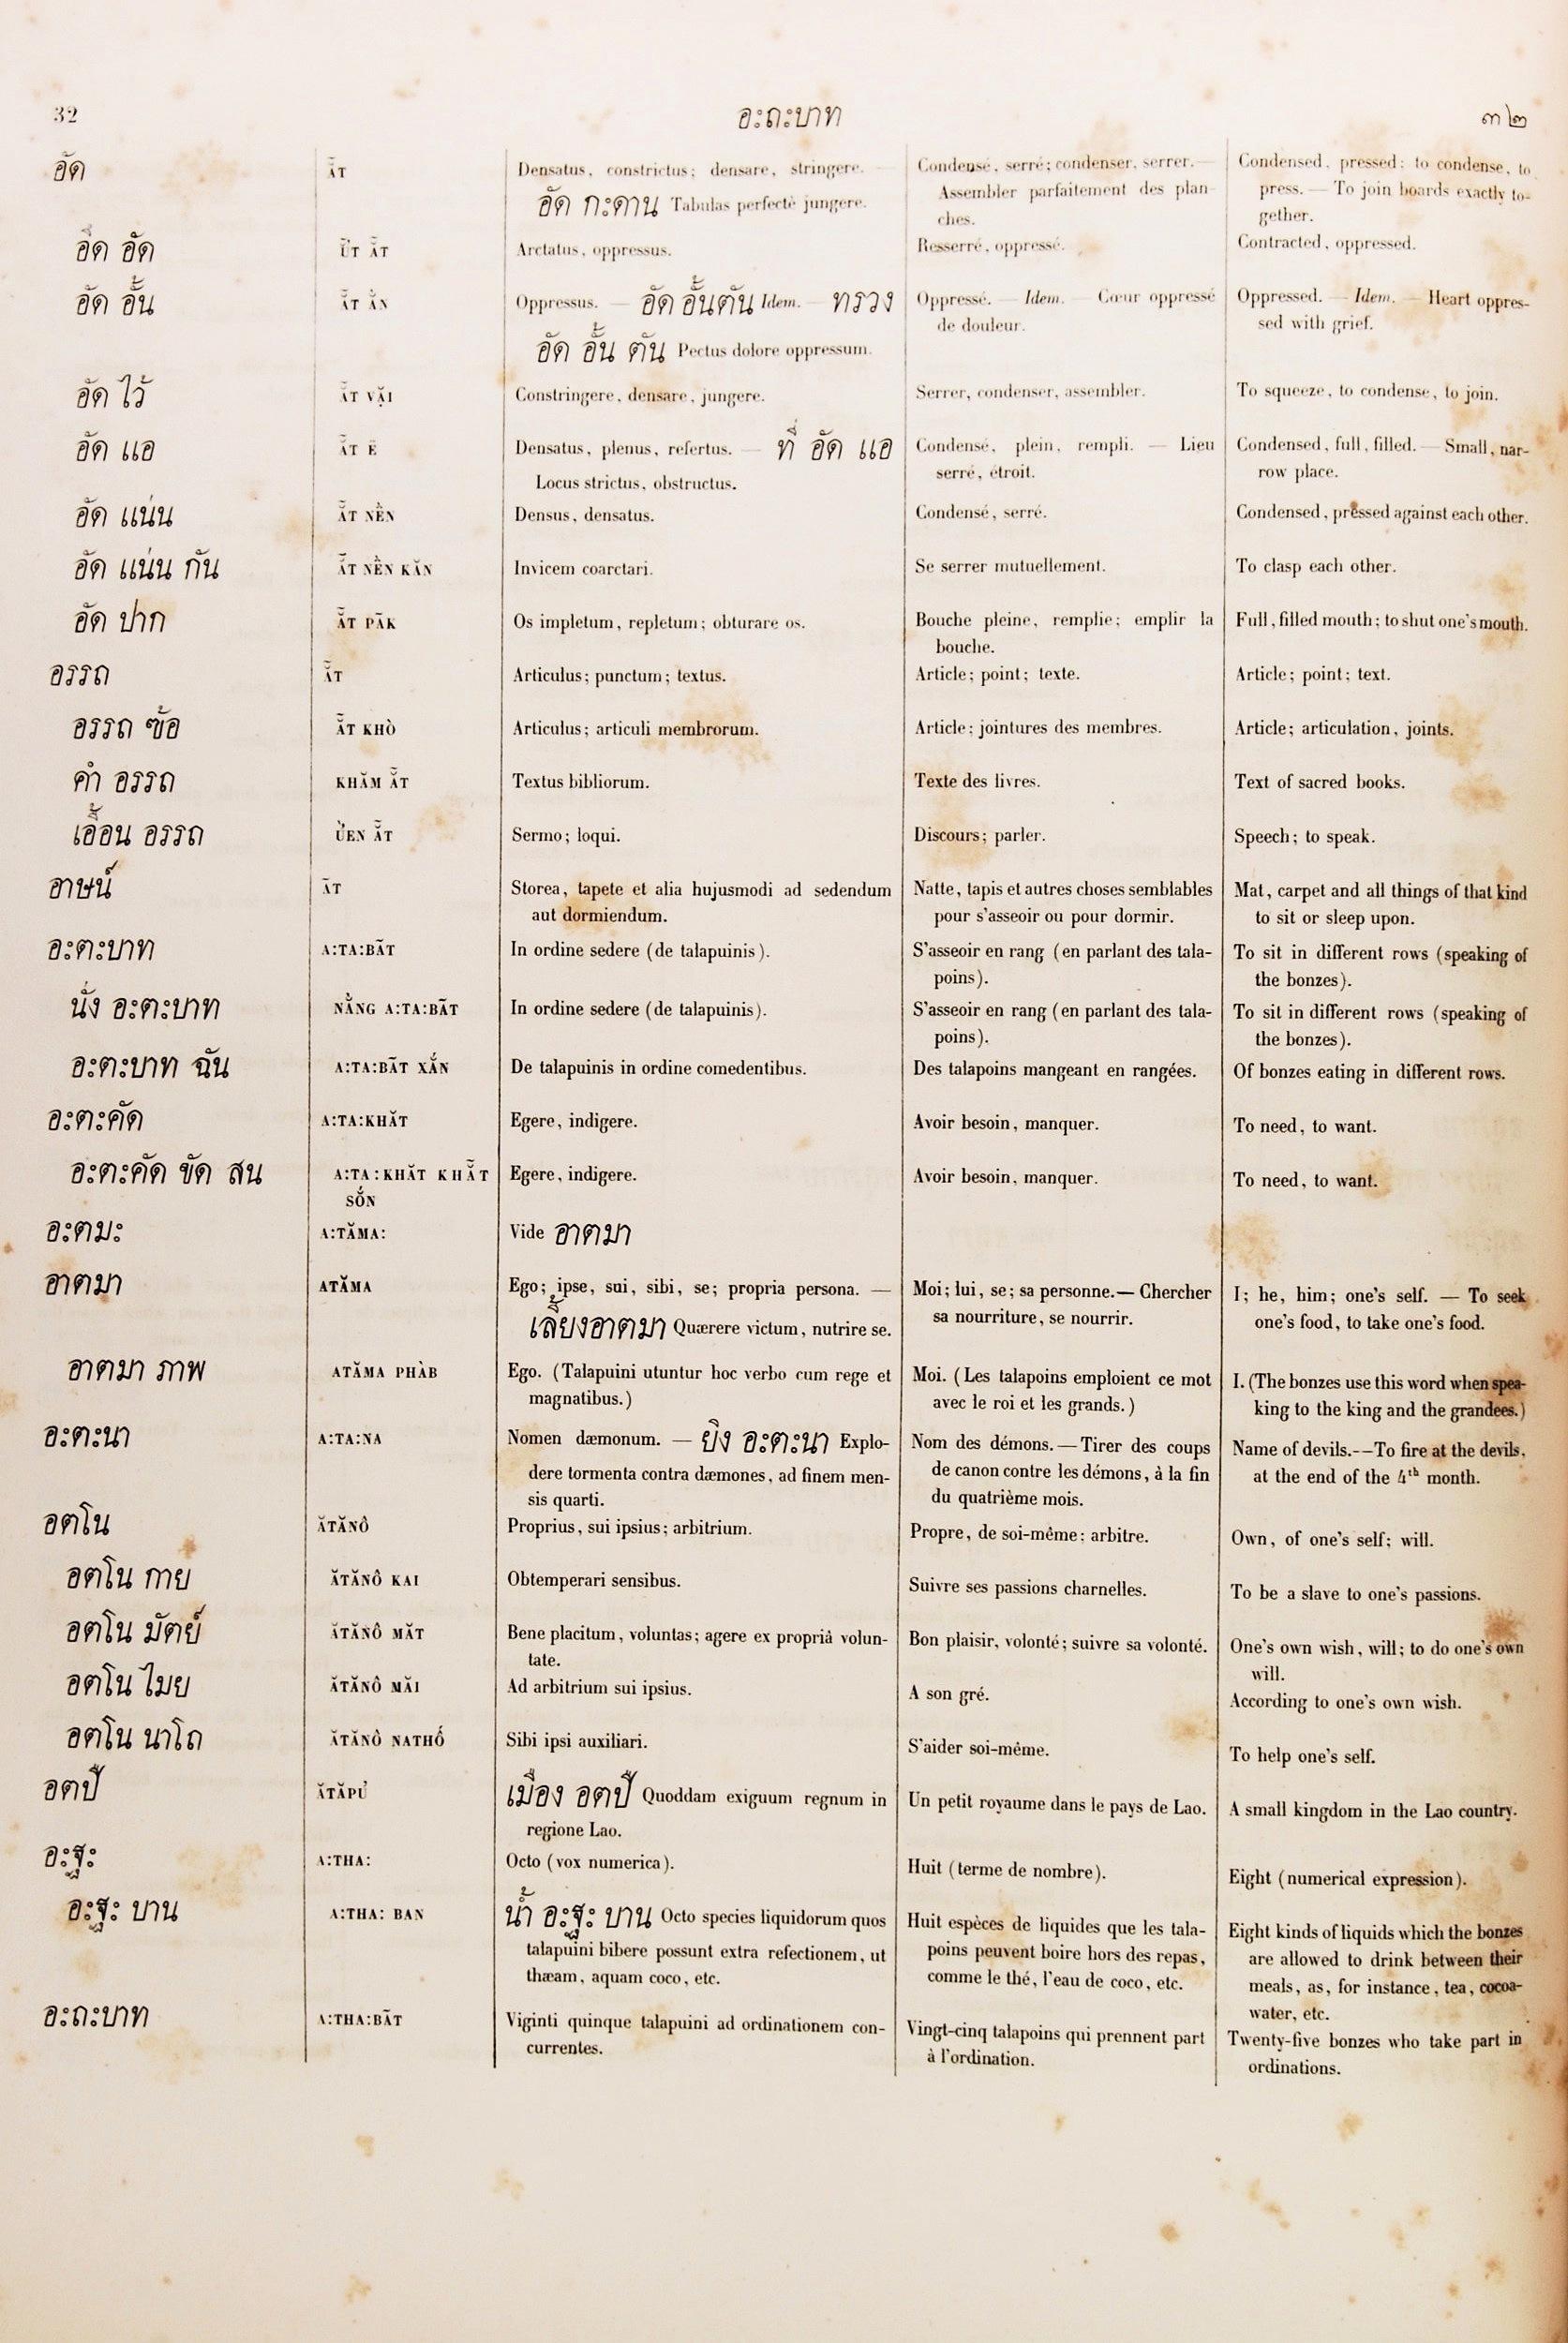 32 อะถะบาท ๓๒
อัด ẮT Densatus, constrictus; densare, stringere. — Condensé, serré; condenser, serrer.— Condensed, pressed; to condense, to
อัด กะดาน Tabulas perfectè jungere. Assembler parfaitement des plan- press. — To join boards exactly to-
ches. gether.
อึด อัด ŬT ẮT Arctatus, oppressus. Resserré, oppressé. Contracted, oppressed.
อัด อั้น ẮT ẮN Oppressus. — อัด อั้นตัน Idem. — ทรวง Oppressé. — Idem. — Cœur oppressé Oppressed. — Idem. — Heart oppres-
อัด อั้น ตัน Pectus dolore oppressum. de douleur. sed with grief.
อัด ไว้ ẮT VẶI Constringere, densare, jungere. Serrer, condenser, assembler. To squeeze, to condense, to join.
อัด แอ ẮT E Densatus, plenus, refertus. — ที่ อัด แอ Condensé, plein, rempli. — Lieu Condensed, full, filled. — Small, nar-
Locus strictus, obstructus. serré, étroit. row place.
อัด แน่น ẮT NÈN Densus, densatus. Condensé, serré. Condensed, pressed against each other.
อัด แน่น กัน ẮT NÈN KĂN Invicem coarctari. Se serrer mutuellement. To clasp each other.
อัด ปาก ẮT PÃK Os impletum, repletum; obturare os. Bouche pleine, remplie; emplir la Full, filled mouth; to shut one's mouth.
bouche.
อรรถ ẮT Articulus; punctum; textus. Article; point; texte. Article; point; text.
อรรถ ฃ้อ ẮT KHÒ Articulus; articuli membrorum. Article; jointures des membres. Article; articulation, joints.
คำ อรรถ KHĂM ẮT Textus bibliorum. Texte des livres. Text of sacred books.
เอื้อน อรรถ ƯEN ẮT Sermo; loqui. Discours; parler. Speech; to speak.
อาษน์ ÃT Storea, tapete et alia hujusmodi ad sedendum Natte, tapis et autres choses semblables Mat, carpet and all things of that kind
aut dormiendum. pour s'asseoir ou pour dormir. to sit or sleep upon.
อะตะบาท A:TA:BÃT In ordine sedere (de talapuinis). S'asseoir en rang (en parlant des tala- To sit in different rows (speaking of
poins). the bonzes).
นั่ง อะตะบาท NẰNG A:TA:BÃT In ordine sedere (de talapuinis). S'asseoir en rang (en parlant des tala- To sit in different rows (speaking of
poins). the bonzes).
อะตะบาท ฉัน A:TA:BÃT XẮN De talapuinis in ordine comedentibus. Des talapoins mangeant en rangées. Of bonzes eating in different rows.
อะตะคัด A:TA:KHĂT Egere, indigere. Avoir besoin, manquer. To need, to want.
อะตะคัด ขัด สน A:TA:KHĂT KHẴT Egere, indigere. Avoir besoin, manquer. To need, to want.
SỐN
อะตมะ A:TĂMA: Vide อาตมา
อาตมา ATĂMA Ego; ipse, sui, sibi, se; propria persona. — Moi; lui, se; sa personne.— Chercher I; he, him; one's self. — To seek
เลี้ยงอาตมา Quærere victum, nutrire se. sa nourriture, se nourrir. one's food, to take one's food.
อาตมา ภาพ ATĂMA PHÀB Ego. (Talapuini utuntur hoc verbo cum rege et Moi. (Les talapoins emploient ce mot I. (The bonzes use this word when spea-
magnatibus.) avec le roi et les grands.) king to the king and the grandees.)
อะตะนา A:TA:NA Nomen dæmonum. — ยิง อะตะนา Explo- Nom des démons.—Tirer des coups Name of devils.--To fire at the devils,
dere tormenta contra dæmones, ad finem men- de canon contre les démons, à la fin at the end of the 4th month.
sis quarti. du quatrième mois.
อตโน ĂTĂNÔ Proprius, sui ipsius; arbitrium. Propre, de soi-même; arbitre. Own, of one's self; will.
อตโน กาย ĂTĂNÔ KAI Obtemperari sensibus. Suivre ses passions charnelles. To be a slave to one's passions.
อตโน มัตย์ ĂTĂNÔ MĂT Bene placitum, voluntas; agere ex propriâ volun- Bon plaisir, volonté; suivre sa volonté. One's own wish, will; to do one's own
tate. will.
อตโน ไมย ĂTĂNÔ MĂI Ad arbitrium sui ipsius. A son gré. According to one's own wish.
อตโน นาโถ ĂTĂNÔ NATHỐ Sibi ipsi auxiliari. S'aider soi-même. To help one's self.
อตปื ĂTĂPU' เมือง อตปื Quoddam exiguum regnum in Un petit royaume dans le pays de Lao. A small kingdom in the Lao country.
regione Lao.
อะฐะ A:THA: Octo (vox numerica). Huit (terme de nombre). Eight (numerical expression).
อะฐะ บาน A:THA: BAN น้ำ อะฐะ บาน Octo species liquidorum quos Huit espèces de liquides que les tala- Eight kinds of liquids which the bonzes
talapuini bibere possunt extra refectionem, ut poins peuvent boire hors des repas, are allowed to drink between their
thæam, aquam coco, etc. comme le thé, l'eau de coco, etc. meals, as, for instance, tea, cocoa-
water, etc.
อะถะบาท A:THA:BÃT Viginti quinque talapuini ad ordinationem con- Vingt-cinq talapoins qui prennent part Twenty-five bonzes who take part in
currentes. à l'ordination. ordinations.